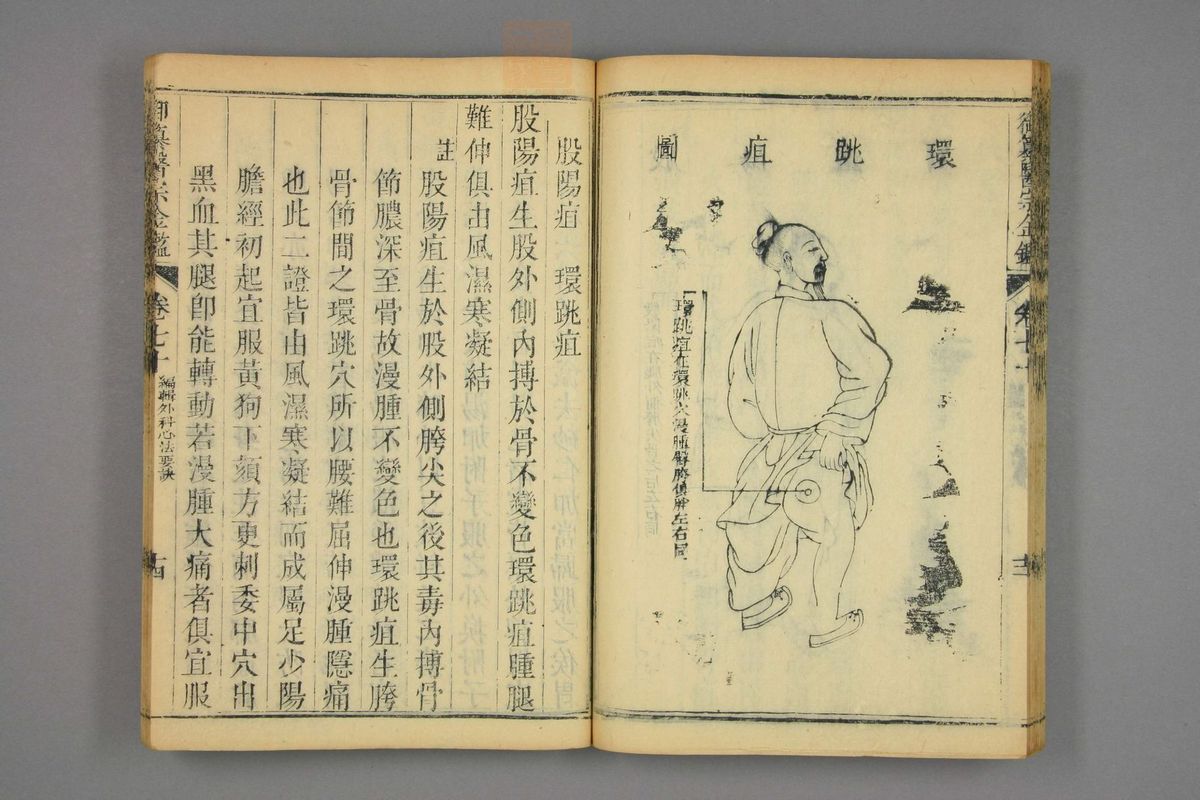 御纂醫宗金鑑
卷七十一
環跳疽圖
環跳疽在環跳穴漫腫臀胯俱腫左右同
股陽疽　環跳疽
股陽疽生股外側內搏於骨不變色環跳疽腫腿
難伸俱由風濕寒凝結
註
股陽疽生於股外側胯尖之後其毒內搏骨
節膿深至骨故漫腫不變色也環跳疽生胯
骨節間之環跳穴所以腰難屈伸漫腫隱痛
也此二證皆由風濕寒凝結而成屬足少陽
膽經初起宜服黃狗下頦方更刺委中穴出
黑血其腿即能轉動若漫腫大痛者俱宜服
御纂醫宗金鑑
卷七十
編輯外科心法要訣
十四